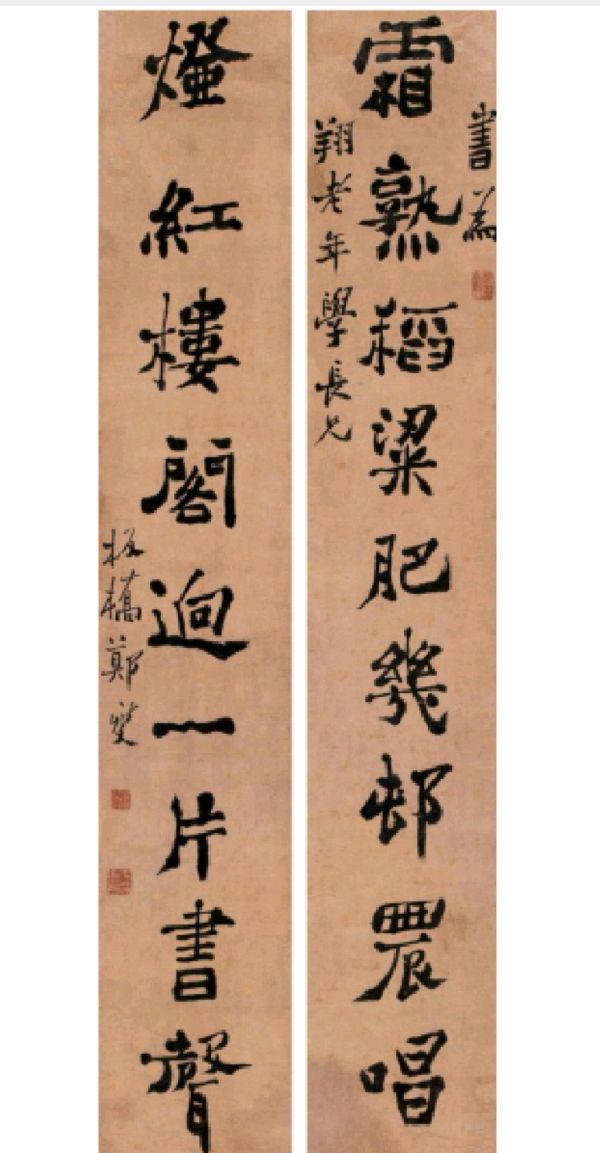 書爲
霜熟稻粱肥幾邨農唱
翔老年學長兄
燈紅樓閣迥一片書聲
板橋鄭燮